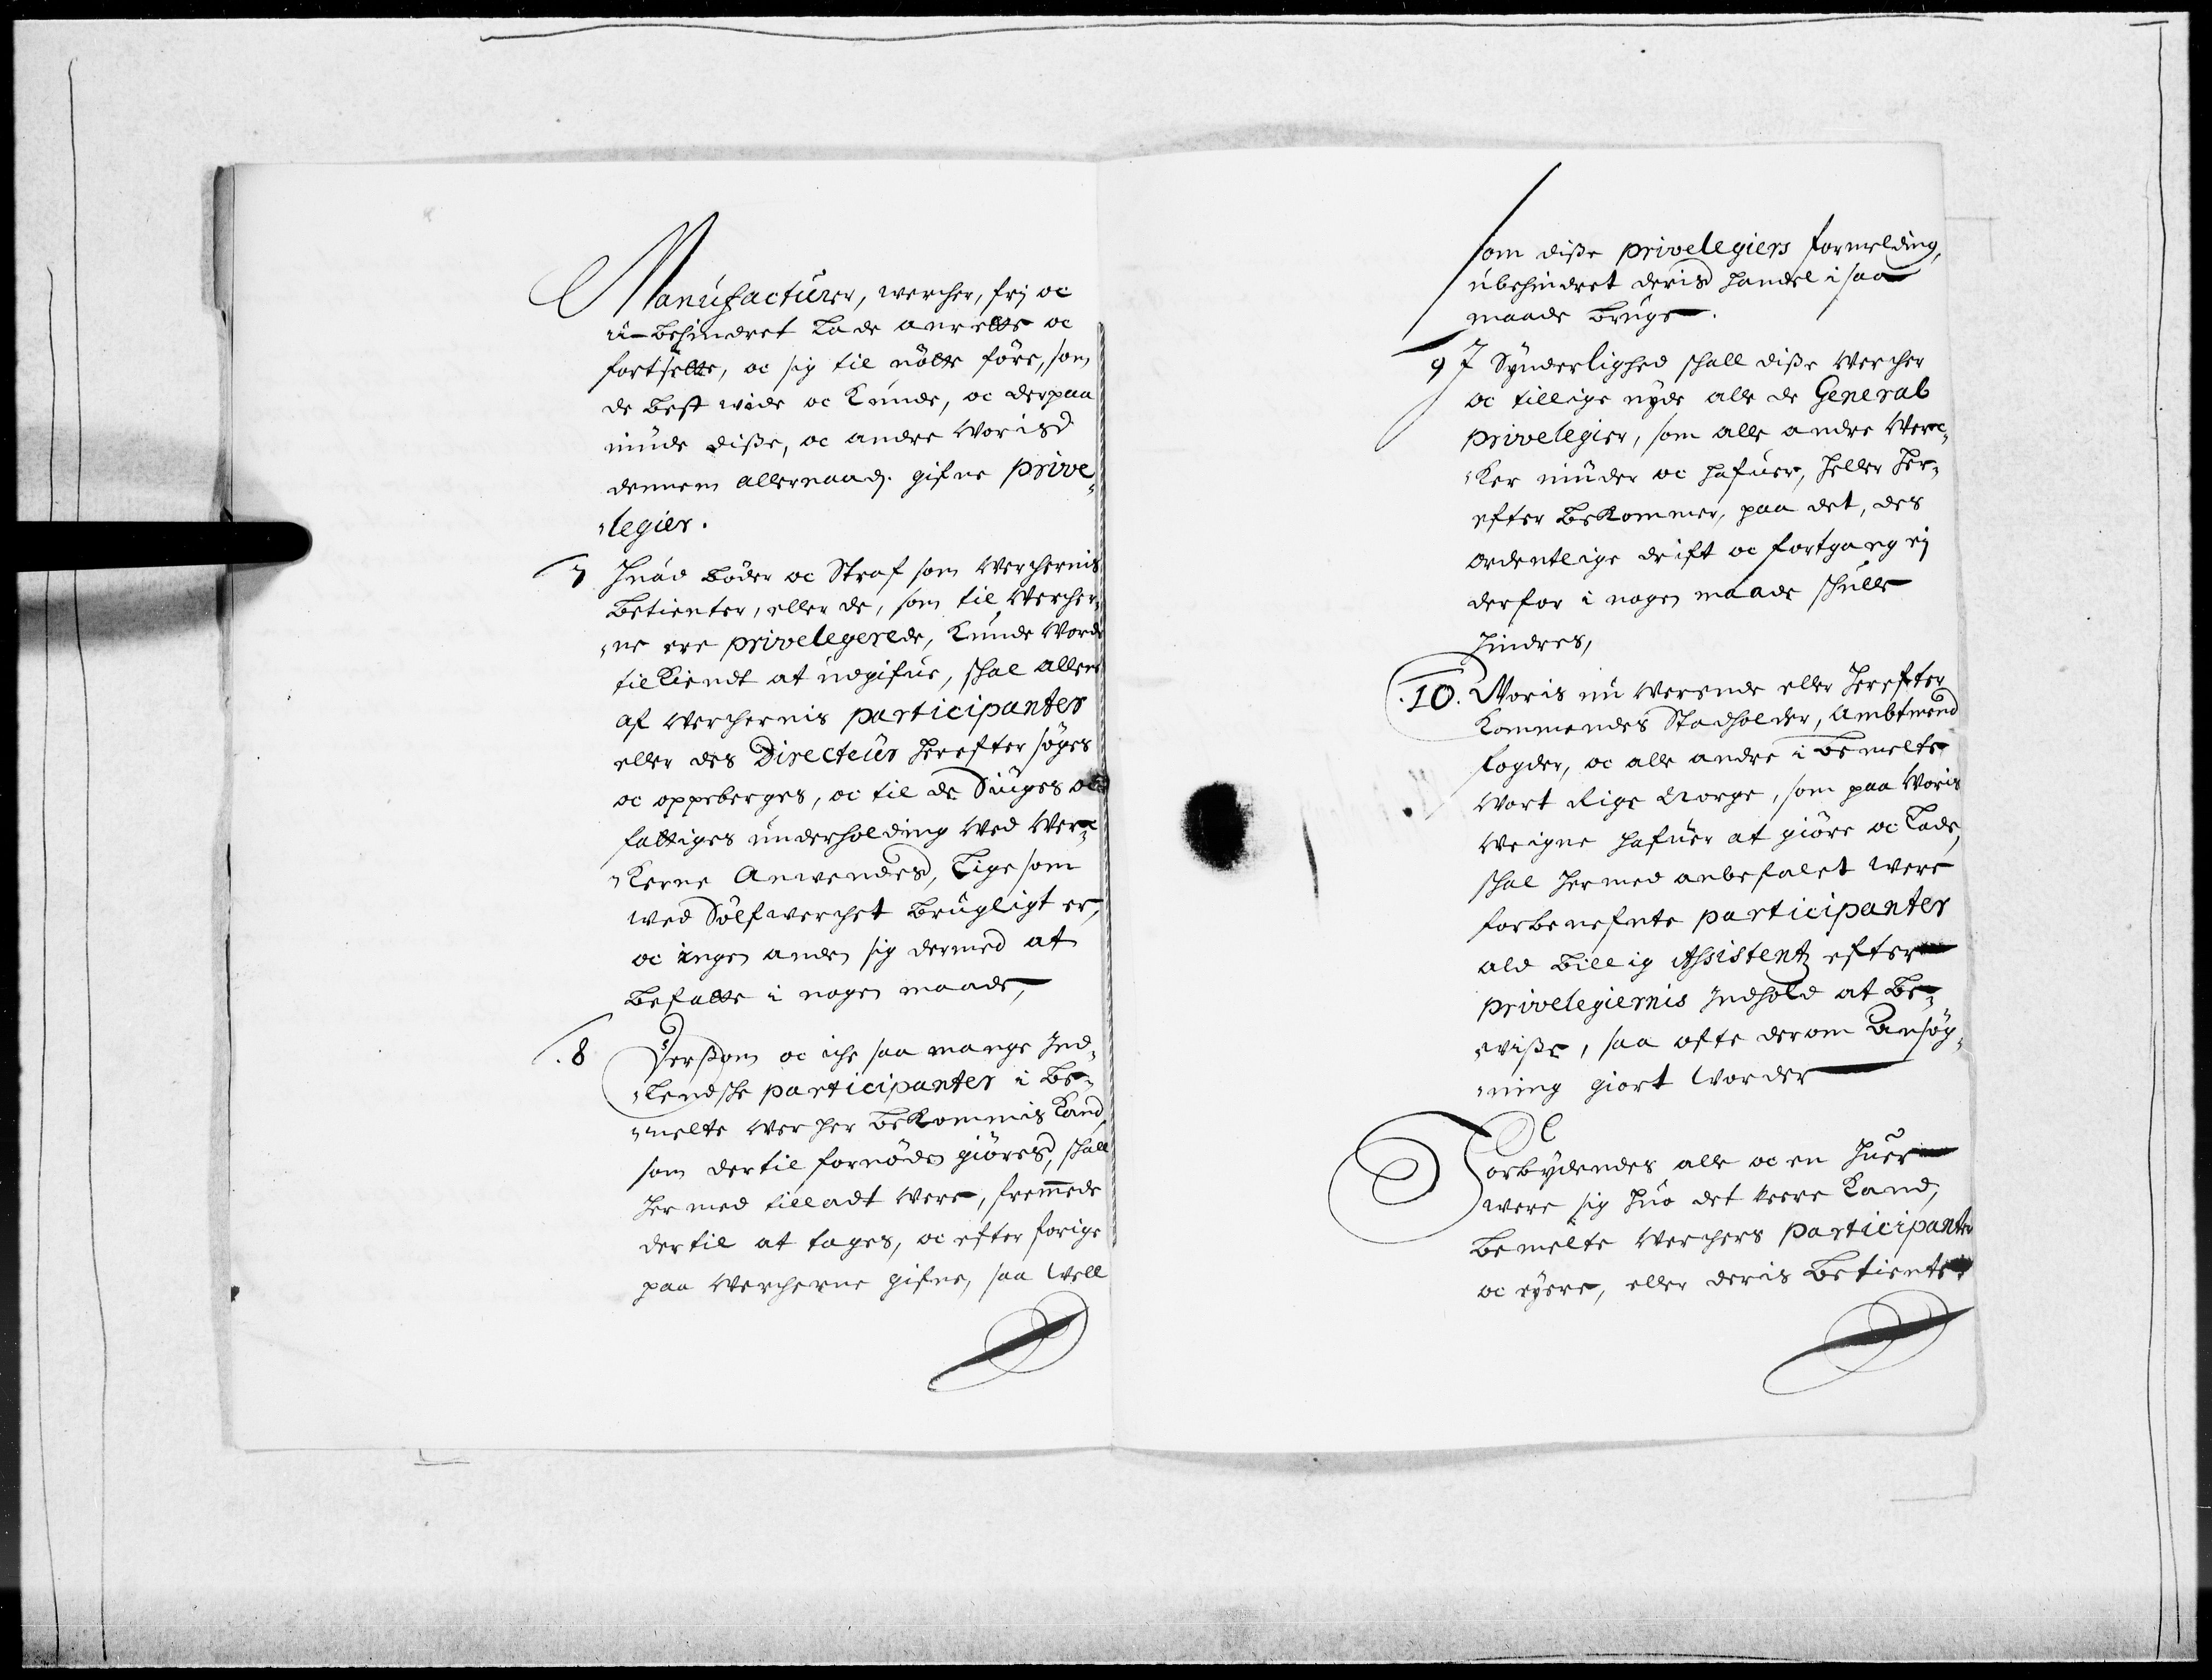 Manufacturer, wercher, frj oc
u-behindret lade anrette oc
fortsette, oc sig til nötte före, som
de best wide oc kunde, oc derpaa
niude diße, oc andre Woris
dennem allernaadj. gifne prive„
„legier.
7 Huad böder oc Straf som Werchernis
betienter, eller de, som til Wercher„
„ne ere privelegerede, kunde Worde
tilkiendt at udgifue, skal allene
af Werchernis participanter
eller des Directeur herefter söges
oc oppeberges, oc til de Siuges oc
fattiges underholding Wed Werc„
„kerne Anwendes, Lige som
wed Sölfwerchet brugligt er,
oc ingen anden sig dermed at
befatte i nogen maade,
8 Dersom oc iche saa mange Ind„
„lendsche participanter i be„
„melte Wercher bekommis kand,
som dertil fornöden giöres, skall
hermed tilladt Were, fremmede
dertil at tages, oc efter forige
paa Wercherne gifne, saa Well
som diße privelegiers formelding,
ubehindret deris handel i saa
maade bruge.
9 I Synderlighed skall diße Wercher
oc tillige nyde alle de General
privelegier, som alle andre Werc„
„ker niuder oc hafuer, heller her„
efter bekommer, paa det, des
ordentlige drift oc fortgang ej
derfor i nogen maade skulle
hindres,
10. Woris nu Werende eller herefter
kommendes Stadholder, Ambtmend
fogder, oc alle andre i bemelte
Wort Rige Norge, som paa Woris
Weigne hafuer at giöre oc lade,
skal hermed anbefalet Were
forbenefnte participanter
ald billig Assistentz efter
privelegiernis Indhold at be„
„wiße, saa ofte derom Ansög„
„ning giort Worder
Forbydendes alle oc en huer
were sig huo det were kand,
bemelte Werchers participanter
oc eyere, eller deris betiente